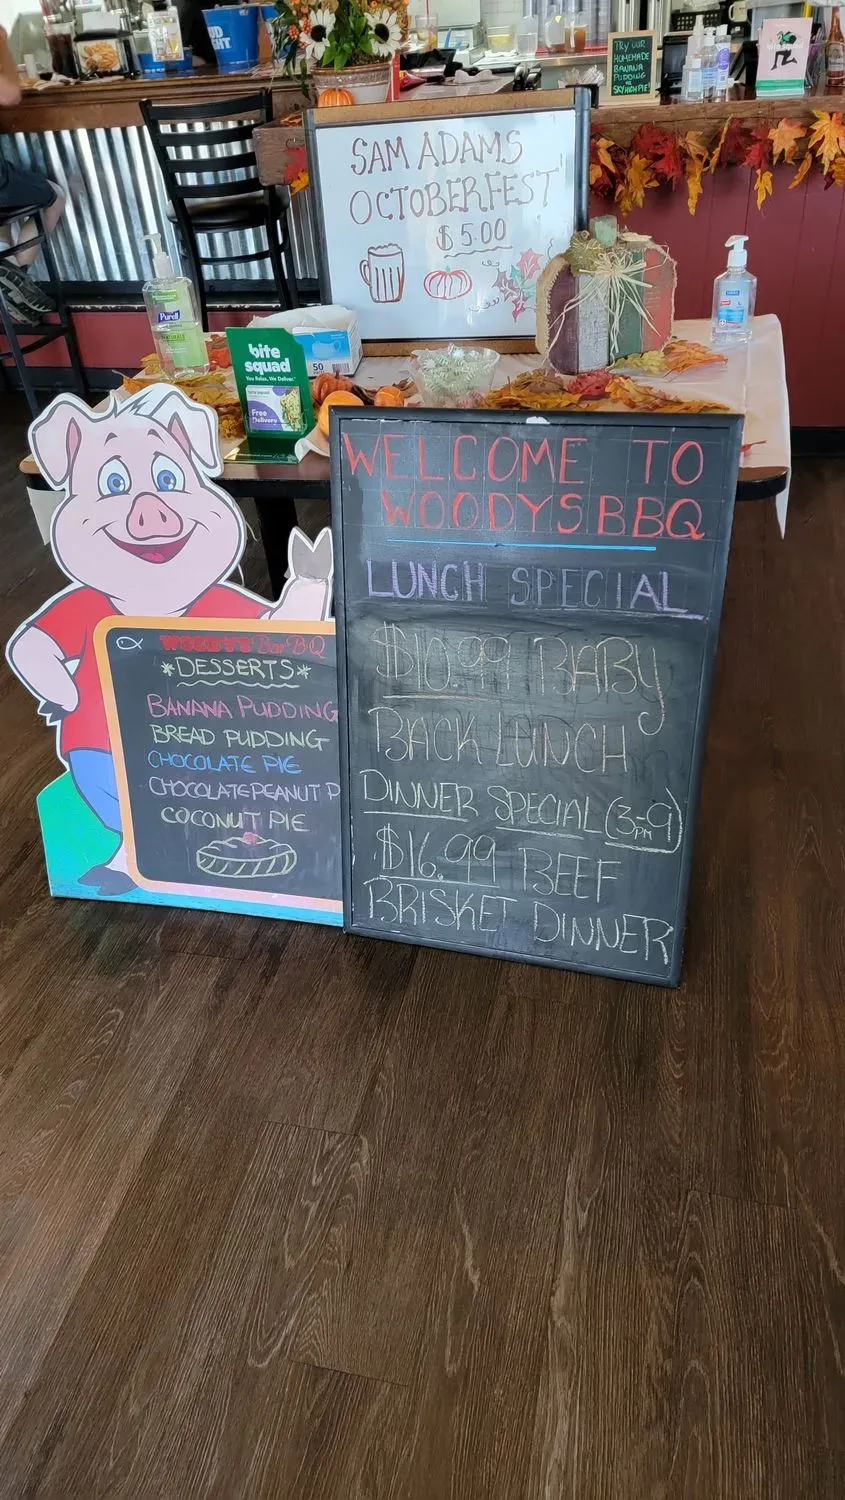 TRY OUR
HOMEMADE
BANANA
PUDDING
SKY HIGH PIE!
SAM ADAMS
OCTOBERFEST
$5.00
Purell
bite
squad
You Relax, We Deliver.
Free
Delivery
50
WELCOME TO
WOODYSBBQ
LUNCH SPECIAL
$10.99 BABY
BACK LUNCH
DINNER SPECIAL (3-9)
PM
$16.99 BEEF
BRISKET DINNER
WOODYS Bar-B-Q
*DESSERTS*
BANANA PUDDING
BREAD PUDDING
CHOCOLATE PIE
CHOCOLATE PEANUT P
COCONUT PIE